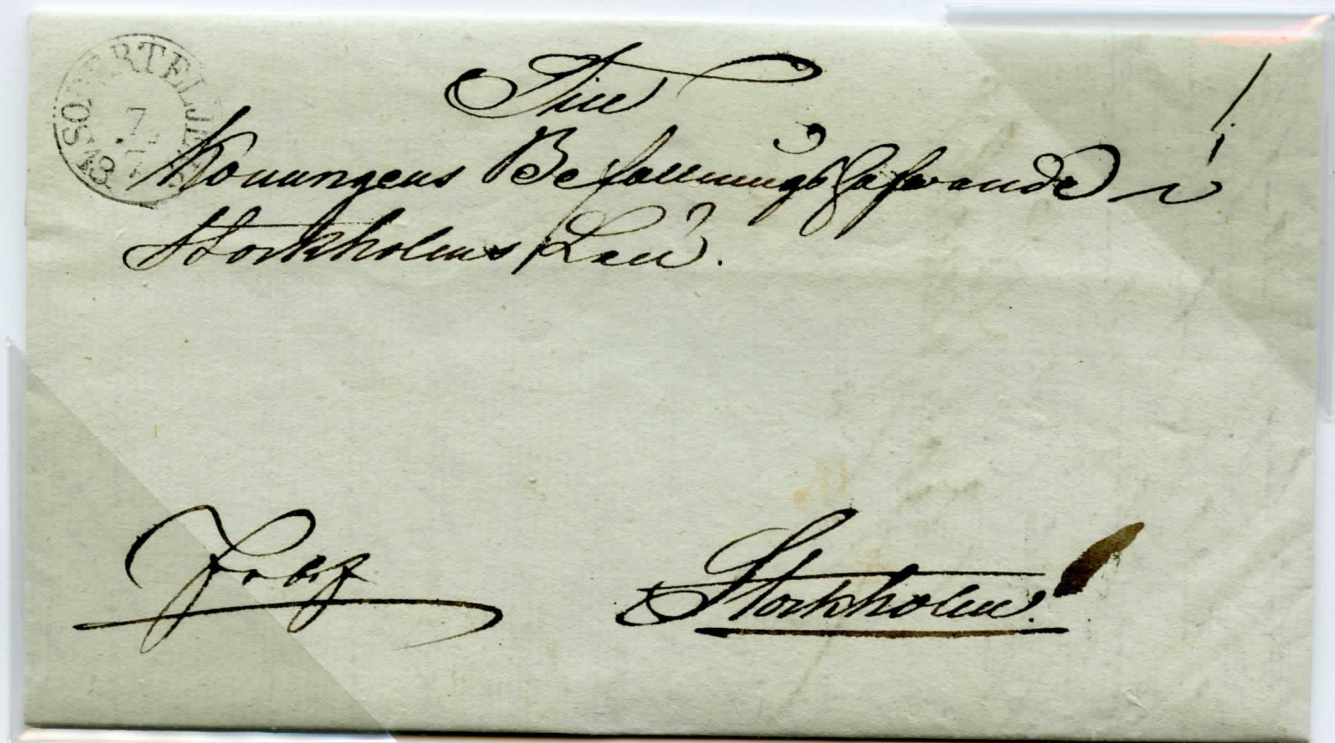 SÖDERTELJE
7
7
Till
Konungens Befallningshafwande i
Stockholms Län.
Stockholm.